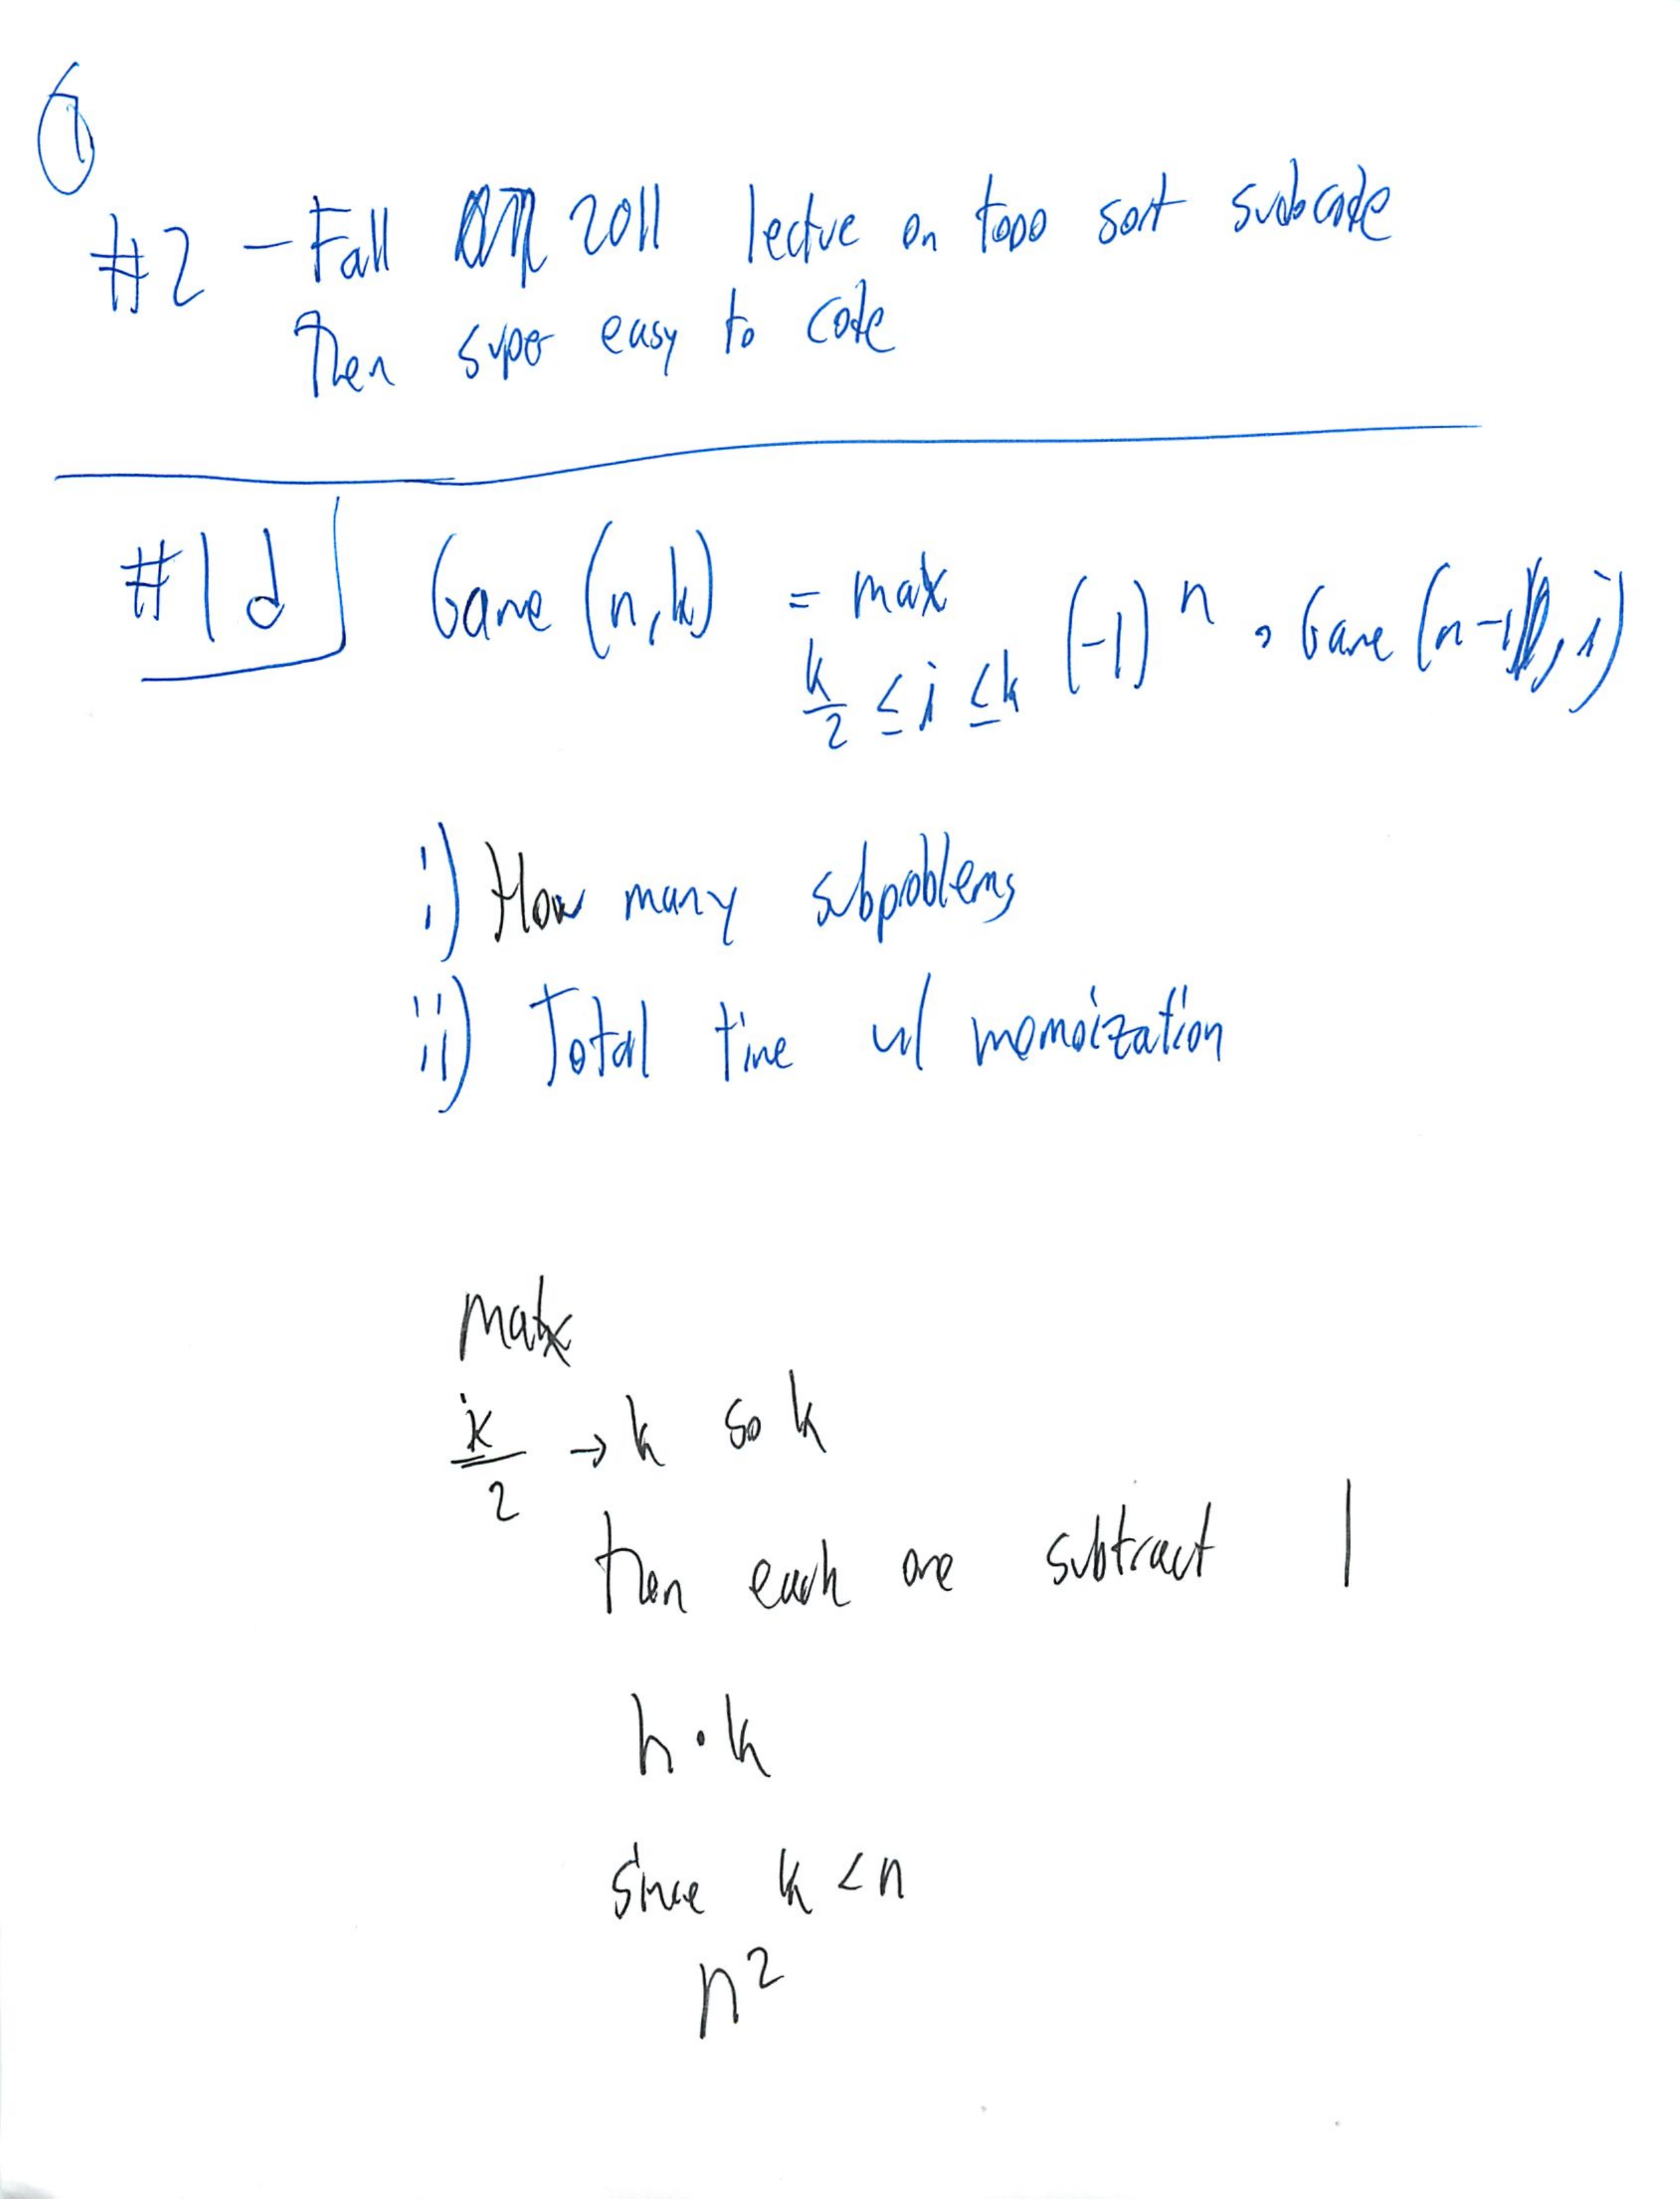 #2 - Fall 2011 lecture on topo sort
Then super easy to code
#1d Game (n, k) = max (-1)^n · Game (n-1, i)
k/2 ≤ i ≤ k
i) How many subproblems
ii) Total time w/ memoization
max
k/2 → k so k
then each one subtract 1
n·k
Since k < n
n²